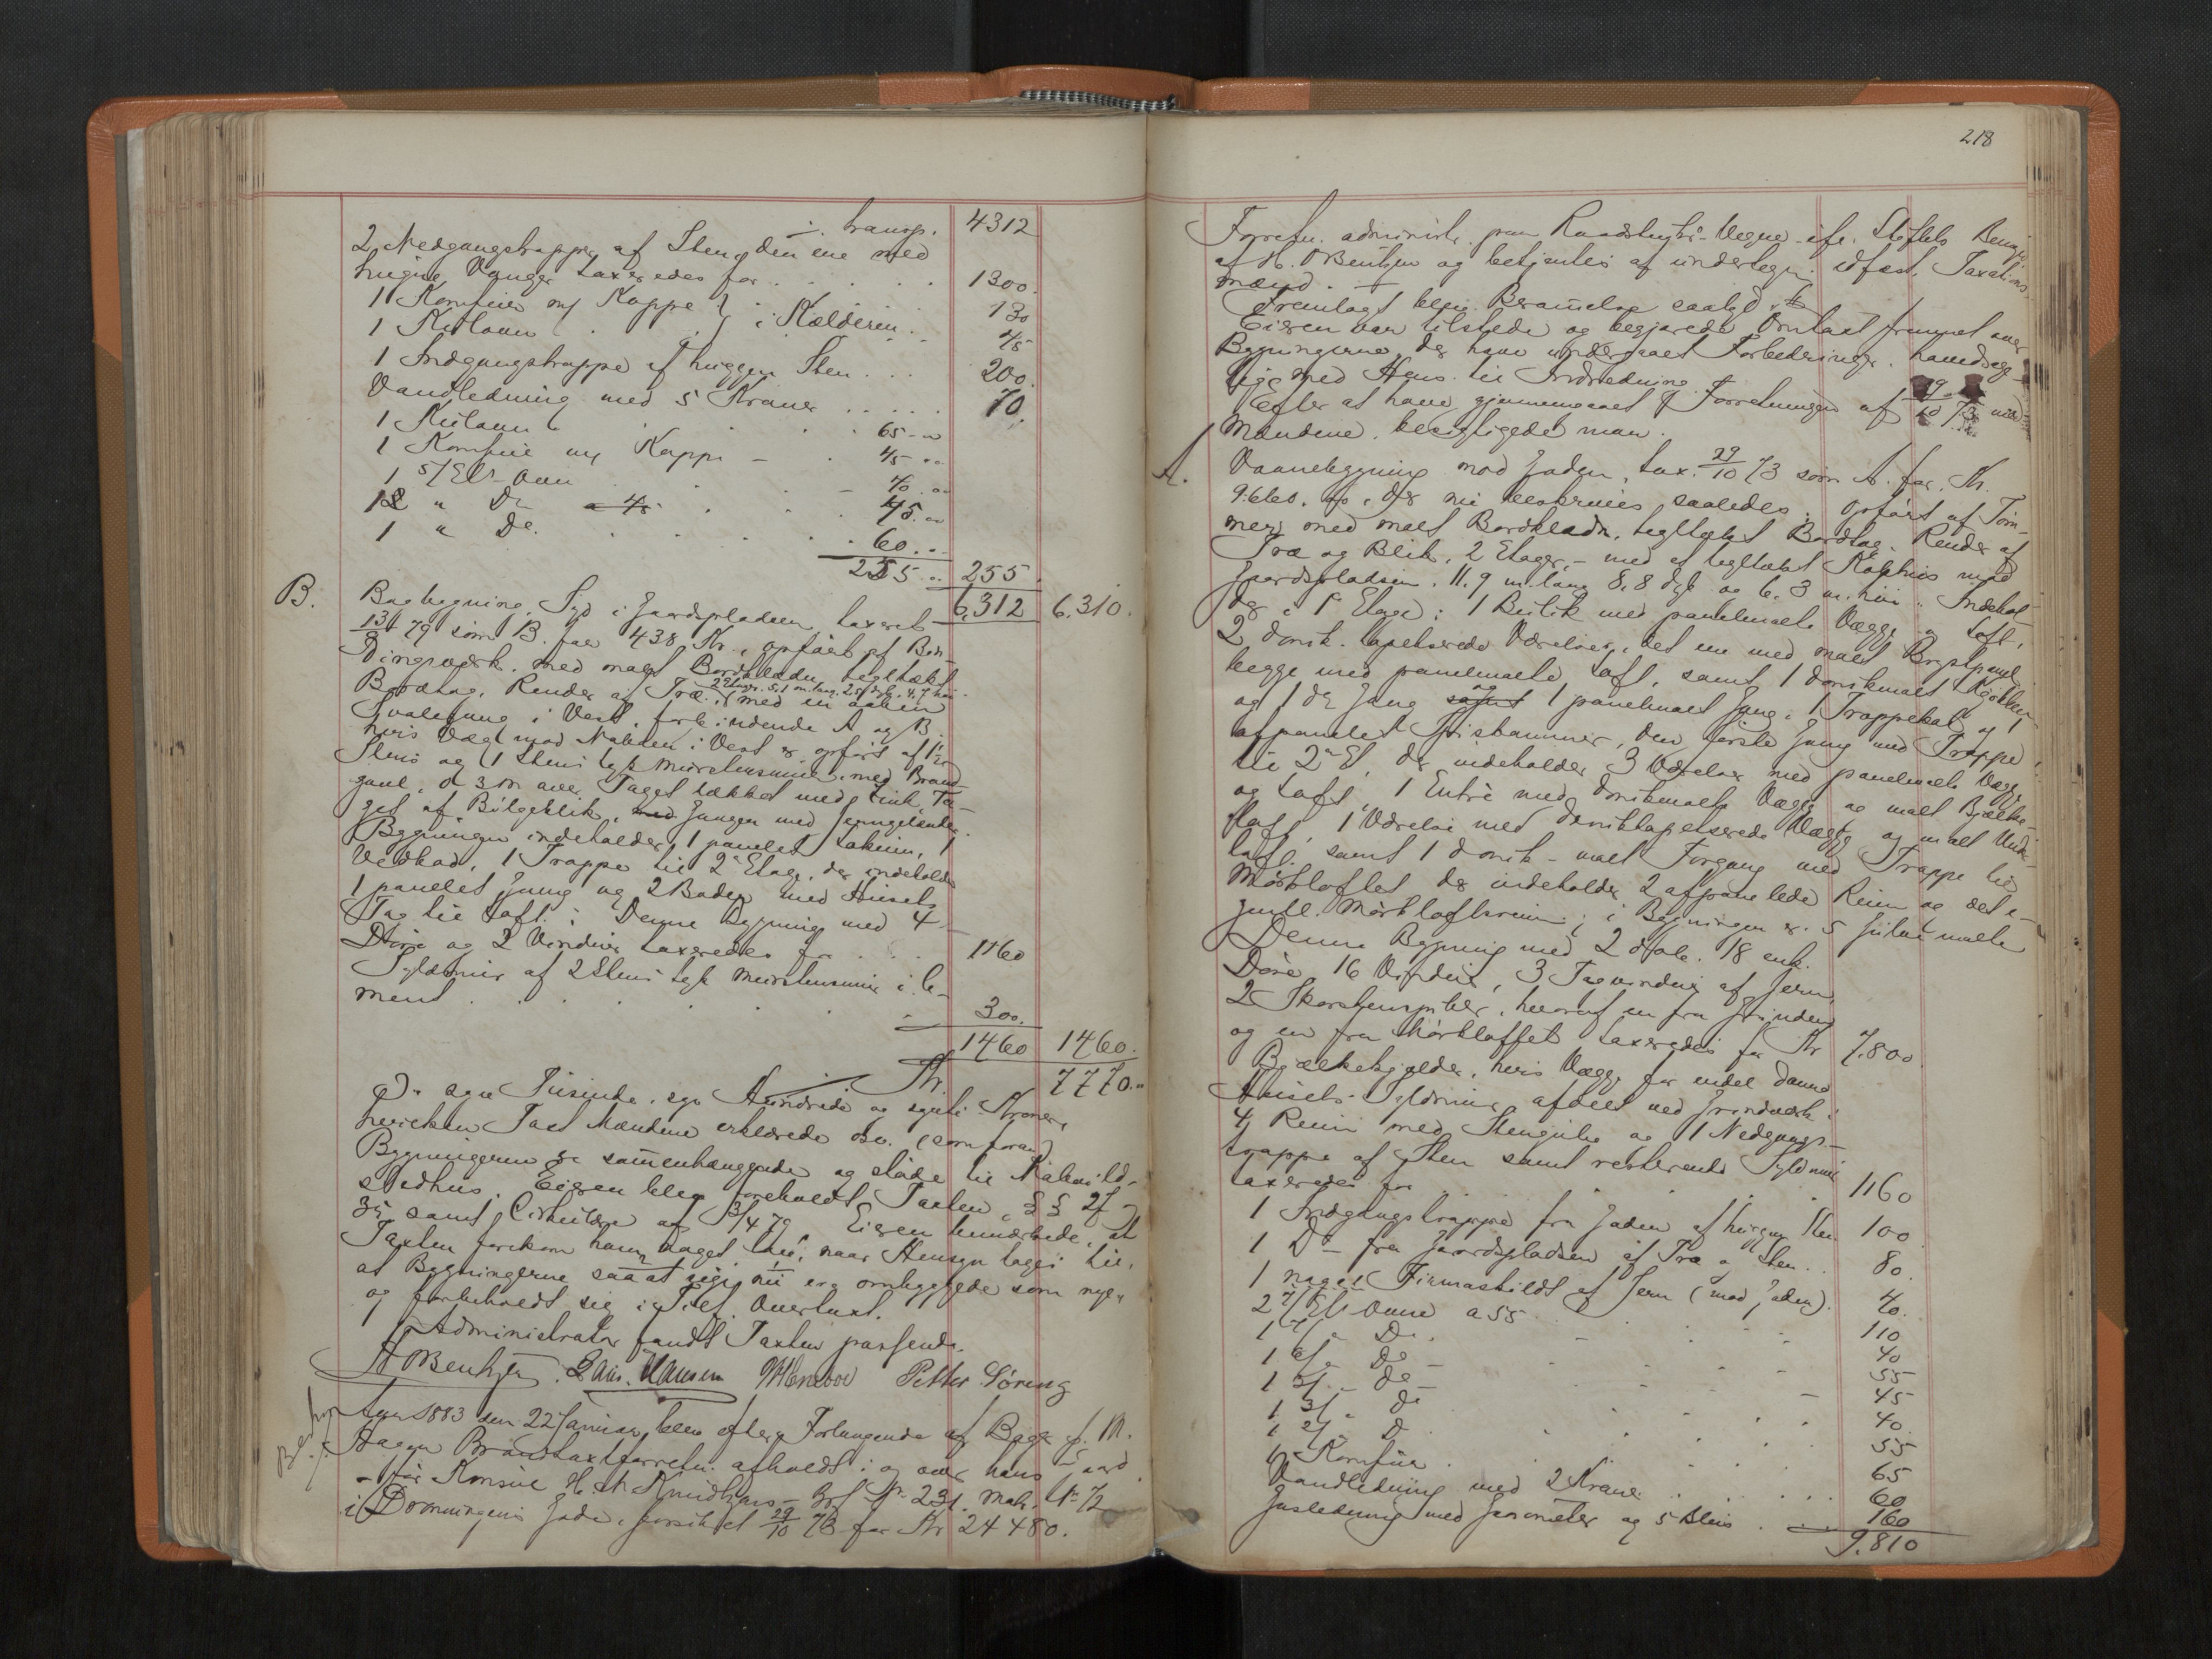 ÷ transp. 4312
2 Nedgangstrapper af Sten, den ene med
hugne Vanger taxeredes for . . . . . 1300.
1 Komfur m/ Kappe } i Kælderen . . 130
1 Kulovn 45
1 Indgangstrappe af huggen Sten . . . 200.
Vandledning med 5 Kraner . . . . . 70.
1 Kulovn . . . . 65 - "
1 Komfur m/ Kappe - . 45 - "
1 5/ El's Ovn . . - 40 . "
1 " Do . . 45. "
1 " Do. . . . . . 60. "
255 . " 255.
6.312 6.310.
B. Bagbygning, Syd i Gaardspladsen taxeret
13/8 79 som B. for 438 Kr., opført af Bin-
dingsværk, med malt Bordklædn, tegltækt
2 Etager, 5,1 m. lang, 2,5 dyb, 4,7 høi
Bordtag, Render af Træ, (med en aaben
Svalegang i Vest, forbindende A og B.
hvis Væg mod Naboen i Vest er opført af 1½
Stens og 1 Stens tyk Murstensmuur, med Brand-
gavl, 0,3 m over Taget dækket med Zink, Ta-
get af Bølgeblik, Gangen med Jerngelænder.
Bygningen indeholder 1 panelet Lokum, 1
Vedbod, 1 Trappe til 2 Etage, der indeholder
1 panelet Gang og 2 Boder med Husets
Tag til Loft. Denne Bygning med 4
Døre og 2 Vinduer taxeredes for . . . 1160
Syldmur af 2 Stens tyk Murstensmuur i Ce-
ment . . . . . . 300.
1460 1460.
Kr. 7770."
D. syv Tusinde, syv Hundrede og sytti Kroner,
hvilken Taxt Mændene erklærede osv. (som foran)
Bygningerne er sammenhængende og støde til Nabo-ild-
stedhus. Eieren blev foreholdt Taxten, §§ 27
35 samt Cirkulære af 3/4 79. Eieren bemærkede, at
Taxten forekom ham noget lav, naar Hensyn tages til,
at Bygningerne saa at sige nu ere ombyggede som nye,
og forbeholdt sig i Tilf. Overtaxt.
Administrator fandt Taxten passende.
H O Bentzen. Lars. Hansen Petter Søreng
Aar 1883 den 22 Januar blev efter Forlangende af Bager J. M.
Haagen Brandtaxtforretn. afholdt i og over hans Gaard
- før Konsul H. M. Knudtzens - Brf No 231. Mat. No 72
i Dronningens Gade, forsikret 29/10 73 for Kr 24480.
218
Forretn. administr. paa Raadstuens Vegne ifr. Stiftets Bevilg.
af H. O Bentzen og betjentes af undertegn. edfæst. Taxations-
mænd.
Fremlagt blev Berammelse saalyd.
Eieren var tilstede og begjærede Omtaxt fremmet over
Bygningerne, der have undergaaet Forbedringer, hovedsag-
lig med Hens. til Indredning.
Efter at have gjennemgaaet Forretningen af 29/10 73 med
Mændene, besigtigede man.
A. Vaanebygning mod Gaden, tax. 29/10 73 som A. for Kr.
9.660. og der nu beskrives saaledes. Opført af Tøm-
mer, med malt Bordklædn, tegltækt Bordtag, Render af
Træ og Blik, 2 Etager, - med et tegltækt Kophus mod
Gaardspladsen. 11.9 m. lang 8,8 dyb og 6.3 m. høi. Indehol-
der i 1' Etage: 1 Butik med panelmalte Vægge og Loft,
2 donk. tapetserede Værelser, det ene med malt Brystpanel,
begge med panelmalte Loft, samt 1 donkmalt Kjøkken
og 1 Do Gang og 1 panelmalt Gang, 1 Trappekot, og 1
afpanelet Spiskammer, den første Gang med Trappe
til 2' Et, der indeholder 3 Værelser med panelmalte Vægge
og Loft, 1 Entré med donkmalte Vægge og malt Bjælke-
loft, 1 Værelse med donktapetserede Vægge og malt Under-
loft, samt 1 donk-malt Forgang med Trappe til
Mørkloftet der indeholder 2 afpanelede Rum og det ø-
Mørkloftsrum; i Bygningen er 5 Gulve malte
Denne Bygning med 2 dobb. 18 enk.
Døre, 16 Vinduer, 3 Tagvinduer af Jern,
2 Skorstenspiber, hvoraf en fra Grunden
og en fra Mørkloftet taxeredes for Kr 7.800.
Bjælkekjælder, hvis Vægge for endel danne
Husets Syldmur, afdelt ved Grindværk i
4 Rum med Stengulv og 1 Nedgangs-
trappe af Sten samt resterende Syldmur
taxeredes for . . . . . . 1160
1 Indgangstrappe fra Gaden af huggen Sten 100
1 Do - fra Gaardspladsen af Træ og Sten . . 80.
1 Firmaskildt af Jern (mod Gaden). 40.
2 El's Ovne a 55 . . . . 110
1 " Do . . . . 40
1 6/ " Do - . . . 55
1 5/ - do - . . . - 45
1 3/ " do . . . . 40.
1 2/ " D . . . . 55
Komfur . . . . . . 65
Vandledning med 2 Kraner . . . . . 60
Gasledning med Gasometer og 5 Blus . . . 160
9.810